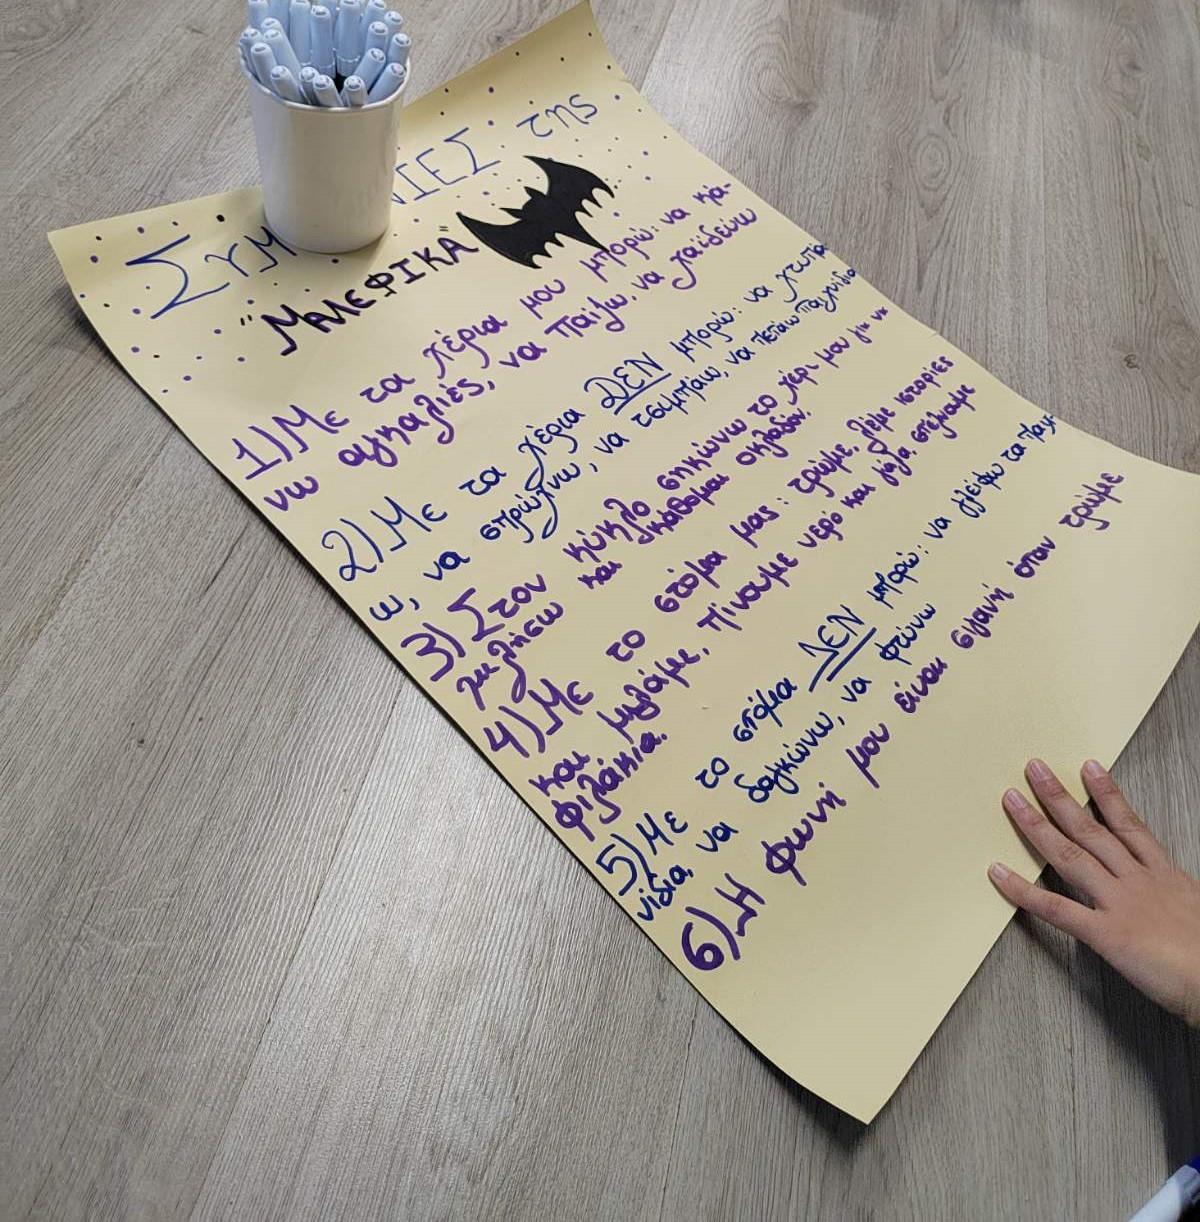 ΣΥΜ ΝΙΕΣ της
"ΜΑΛΕΦΙΚΑ"
1) Με τα χέρια μου μπορώ: να κά-
νω αγκαλιές, να παίζω, να χαϊδεύω
2) Με τα χέρια ΔΕΝ μπορώ: να χτυπάω
ω, να σπρώχνω, να τσιμπάω, να πετάω παιχνίδια
3) Στον κύκλο σηκώνω το χέρι μου για να
μιλήσω και κάθομαι οκλαδόν.
4) Με το στόμα μας: τρώμε, λέμε ιστορίες
και μιλάμε, πίνουμε νερό και γάλα, στέλνουμε
φιλάκια.
5) Με το στόμα ΔΕΝ μπορώ: να γλείφω τα παιχ-
νίδια, να δαγκώνω, να φτύνω
6) Η φωνή μου είναι σιγανή όταν τρώμε